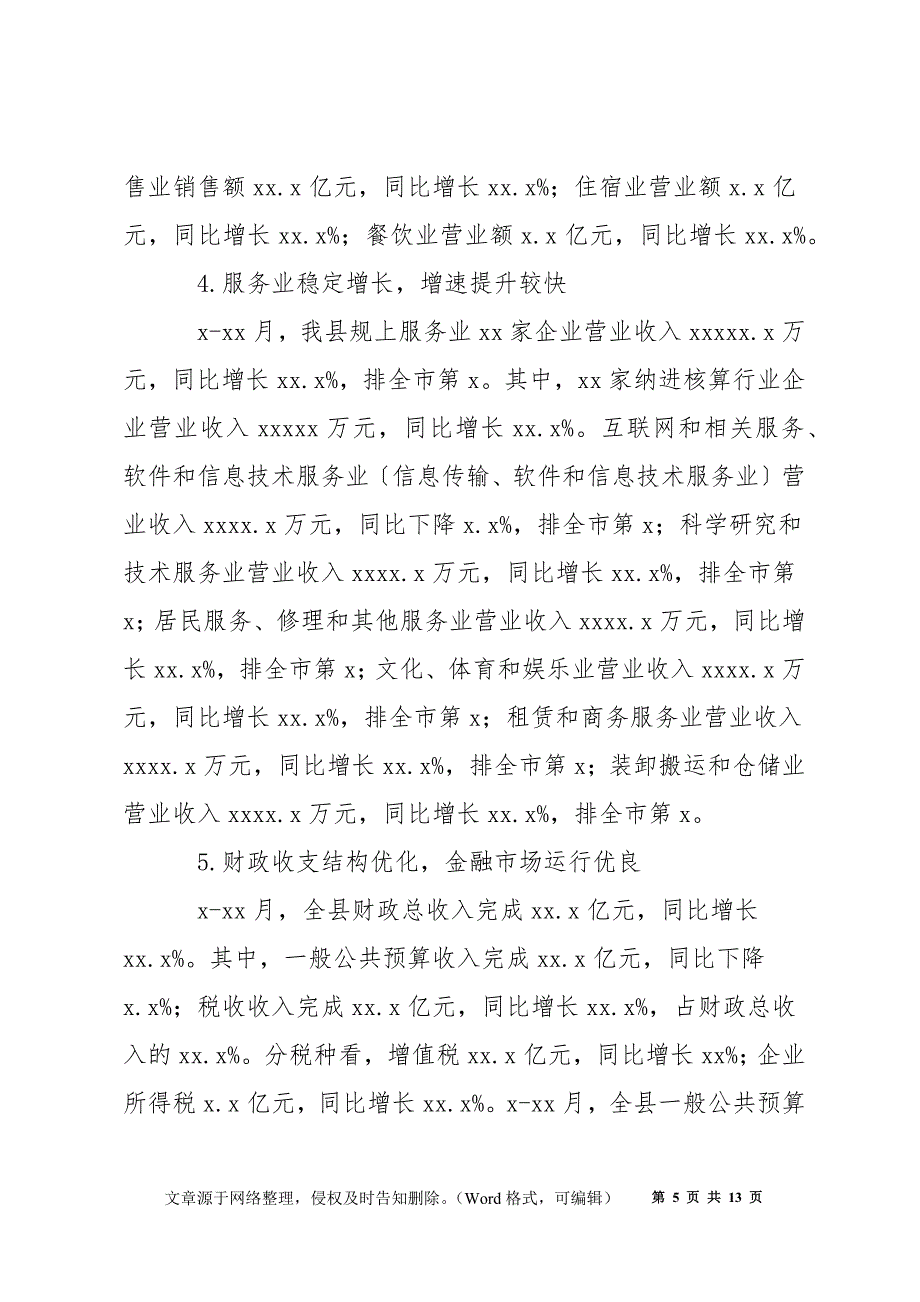 售业销售额 xx.x 亿元，同比增长 xx.x%；住宿业营业额 x.x 亿
元，同比增长 xx.x%；餐饮业营业额 x.x 亿元，同比增长 xx.x%。
4.服务业稳定增长，增速提升较快
x-xx 月，我县规上服务业 xx 家企业营业收入 xxxxx.x 万
元，同比增长 xx.x%，排全市第 x。其中，xx 家纳进核算行业企
业营业收入 xxxxx 万元，同比增长 xx.x%。互联网和相关服务、
软件和信息技术服务业〔信息传输、软件和信息技术服务业〕营
业收入 xxxx.x 万元，同比下降 x.x%，排全市第 x；科学研究和
技术服务业营业收入 xxxx.x 万元，同比增长 xx.x%，排全市第
x；居民服务、修理和其他服务业营业收入 xxxx.x 万元，同比增
长 xx.x%，排全市第 x；文化、体育和娱乐业营业收入 xxxx.x 万
元，同比增长 xx.x%，排全市第 x；租赁和商务服务业营业收入
xxxx.x 万元，同比增长 xx.x%，排全市第 x；装卸搬运和仓储业
营业收入 xxxx.x 万元，同比增长 xx.x%，排全市第 x。
5.财政收支结构优化，金融市场运行优良
x-xx 月，全县财政总收入完成 xx.x 亿元，同比增长
xx.x%。其中，一般公共预算收入完成 xx.x 亿元，同比下降
x.x%；税收收入完成 xx.x 亿元，同比增长 xx.x%，占财政总收
入的 xx.x%。分税种看，增值税 xx.x 亿元，同比增长 xx%；企业
所得税 x.x 亿元，同比增长 xx.x%。x-xx 月，全县一般公共预算
文章源于网络整理，侵权及时告知删除。（Word 格式，可编辑） 第 5 页 共 13 页